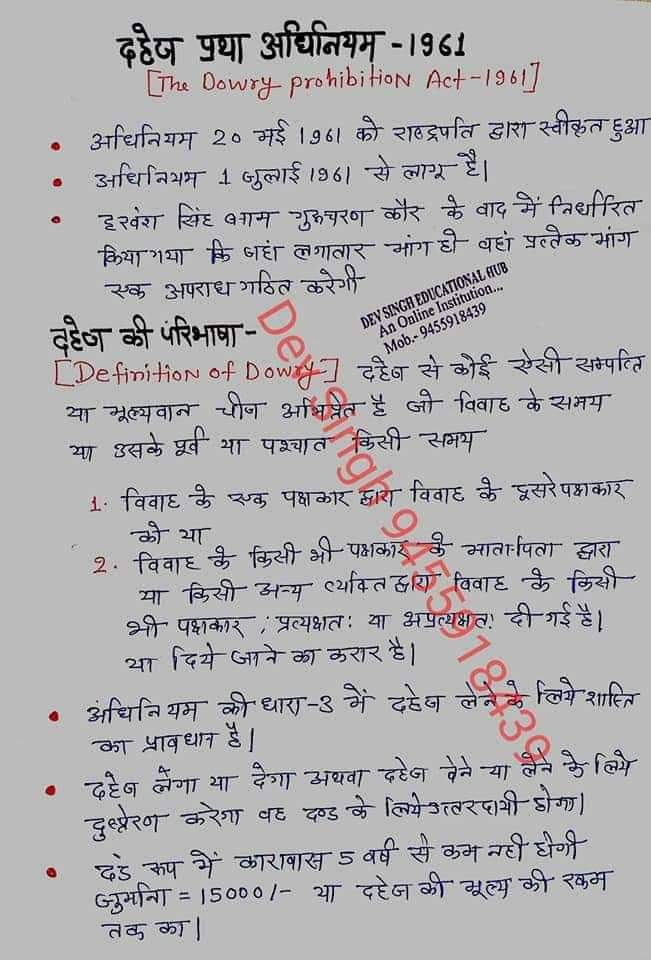 दहेज प्रथा अधिनियम -1961
[The Dowry prohibition Act -1961]
• अधिनियम 20 मई 1961 को राष्ट्रपति द्वारा स्वीकृत हुआ
• अधिनियम 1 जुलाई 1961 से लागू है।
• हरवंश सिंह बनाम गुरुचरण कौर के वाद में निर्धारित
किया गया कि जहां लगातार मांग हो वहां प्रत्येक मांग
एक अपराध गठित करेगी
DEV SINGH EDUCATIONAL HUB
An Online Institution...
Mob.- 9455918439
दहेज की परिभाषा -
[Definition of Dowry] दहेज से कोई ऐसी सम्पत्ति
या मूल्यवान चीज अभिप्रेत है जो विवाह के समय
या उसके पूर्व या पश्चात किसी समय
1. विवाह के एक पक्षकार द्वारा विवाह के दूसरे पक्षकार
को या
2. विवाह के किसी भी पक्षकार के माता-पिता द्वारा
या किसी अन्य व्यक्ति द्वारा विवाह के किसी
भी पक्षकार ; प्रत्यक्षतः या अप्रत्यक्षतः दी गई है।
या दिये जाने का करार है।
• अधिनियम की धारा-3 में दहेज लेने के लिये शास्ति
का प्रावधान है।
• दहेज लेगा या देगा अथवा दहेज देने या लेने के लिये
दुष्प्रेरण करेगा वह दण्ड के लिये उत्तरदायी होगा।
• दंड रूप में कारावास 5 वर्ष से कम नही होगी
जुर्माना = 15000/- या दहेज की मूल्य की रकम
तक का।
Dev Singh 9455918439